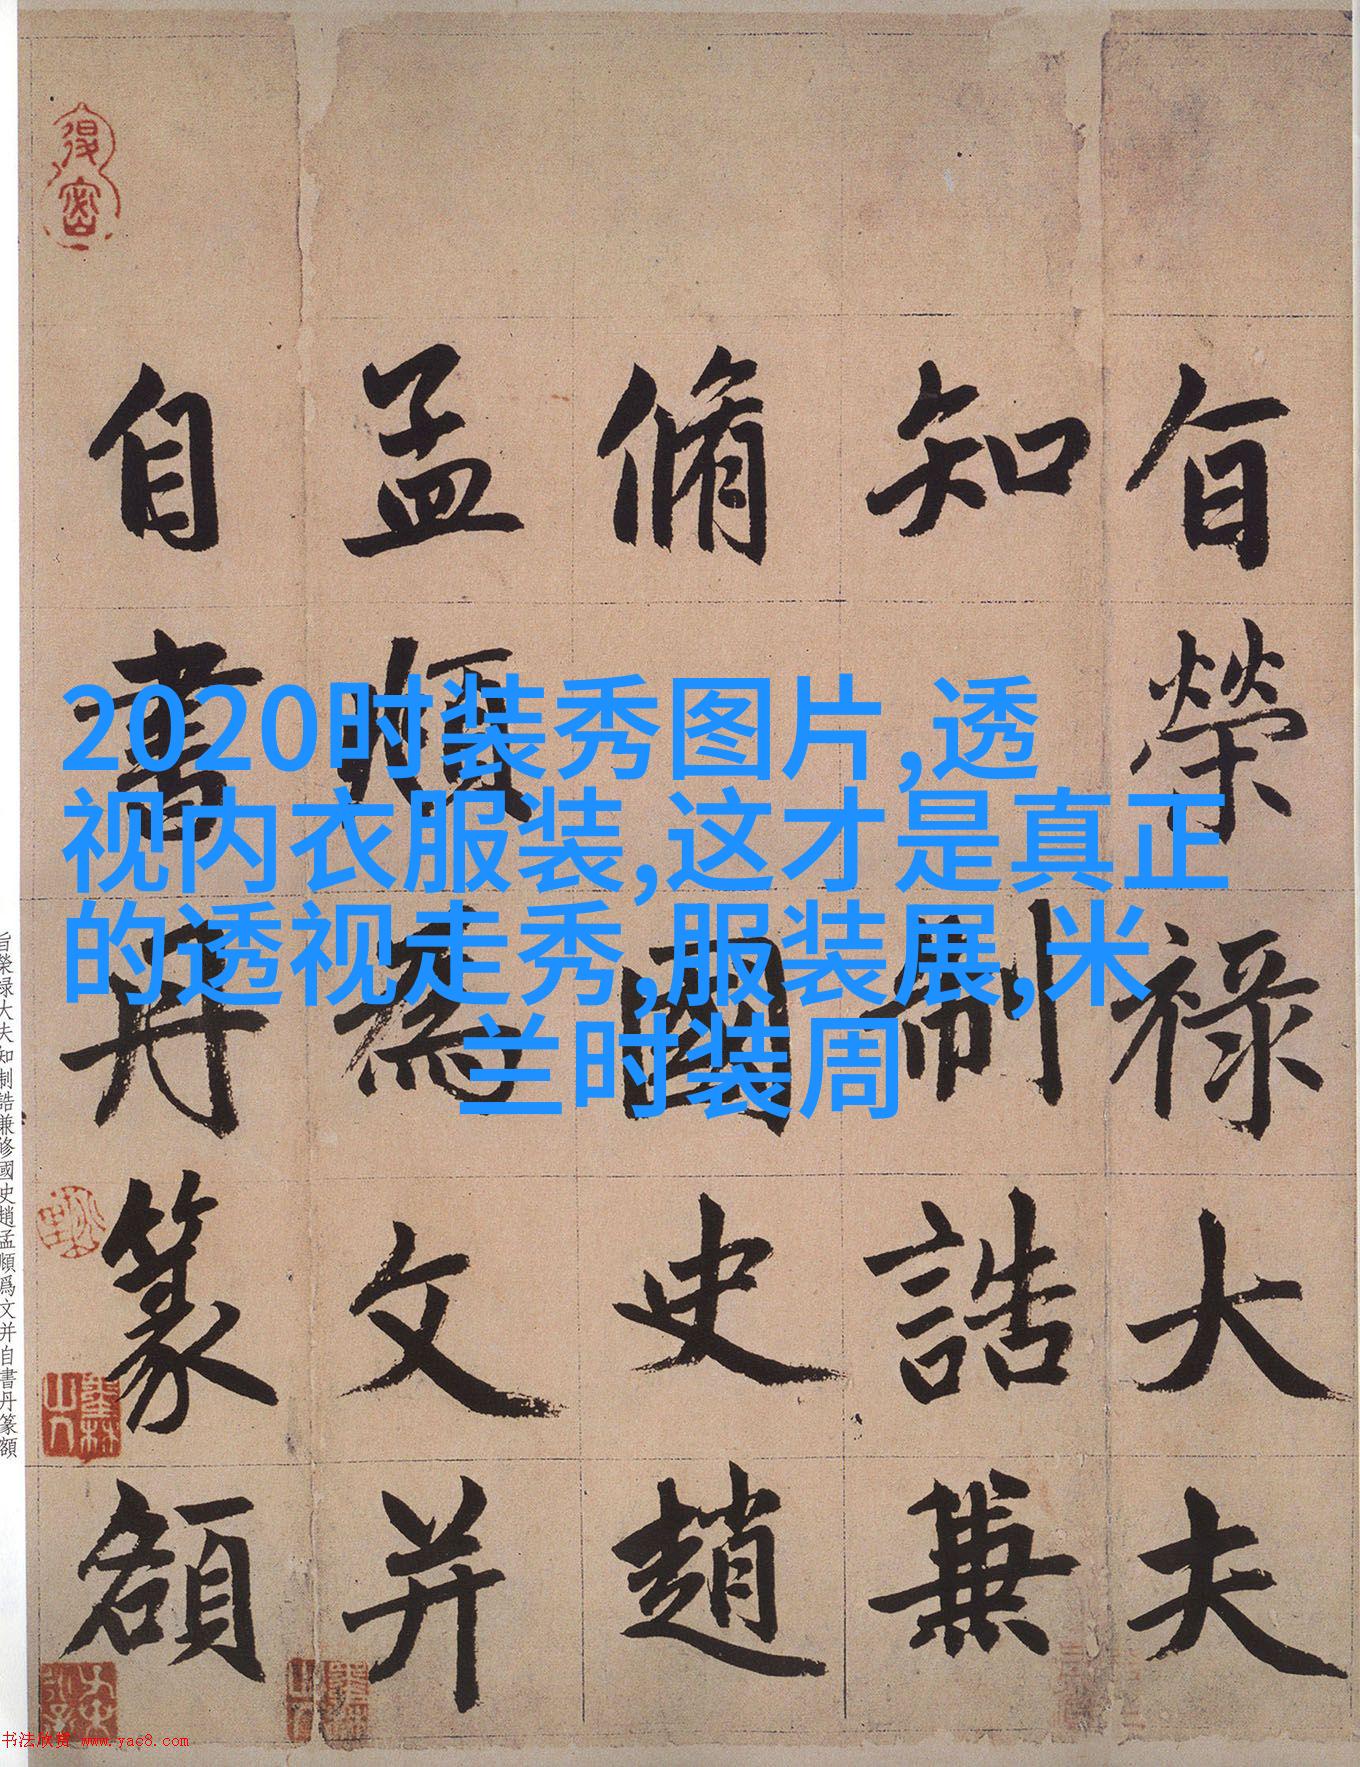 旨榮祿大夫
知制誥兼
脩國史趙
孟頫爲文并
自書丹篆額
2020时装秀图片,透
视内衣服装,这才是真正
的透视走秀,服装展,米
兰时装周
旨榮禄大夫知制誥兼修國史趙孟頫爲文并自書丹篆額
书法欣赏 www.yac8.com